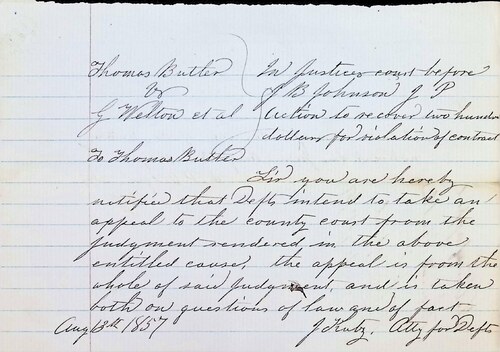 Thomas Butler
vs
G Welton et al
In Justices court before
J B Johnson J P
Action to recover two hund
dollars for violation of contract
To Thomas Butler
Sir you are hereby
notified that Defts intend to take an
appeal to the county court from the
judgment rendered in the above
entitled cause, the appeal is from the
whole of said Judgment, and is taken
both on questions of law and of fact
Aug 13th 1857
J Atty for Defts